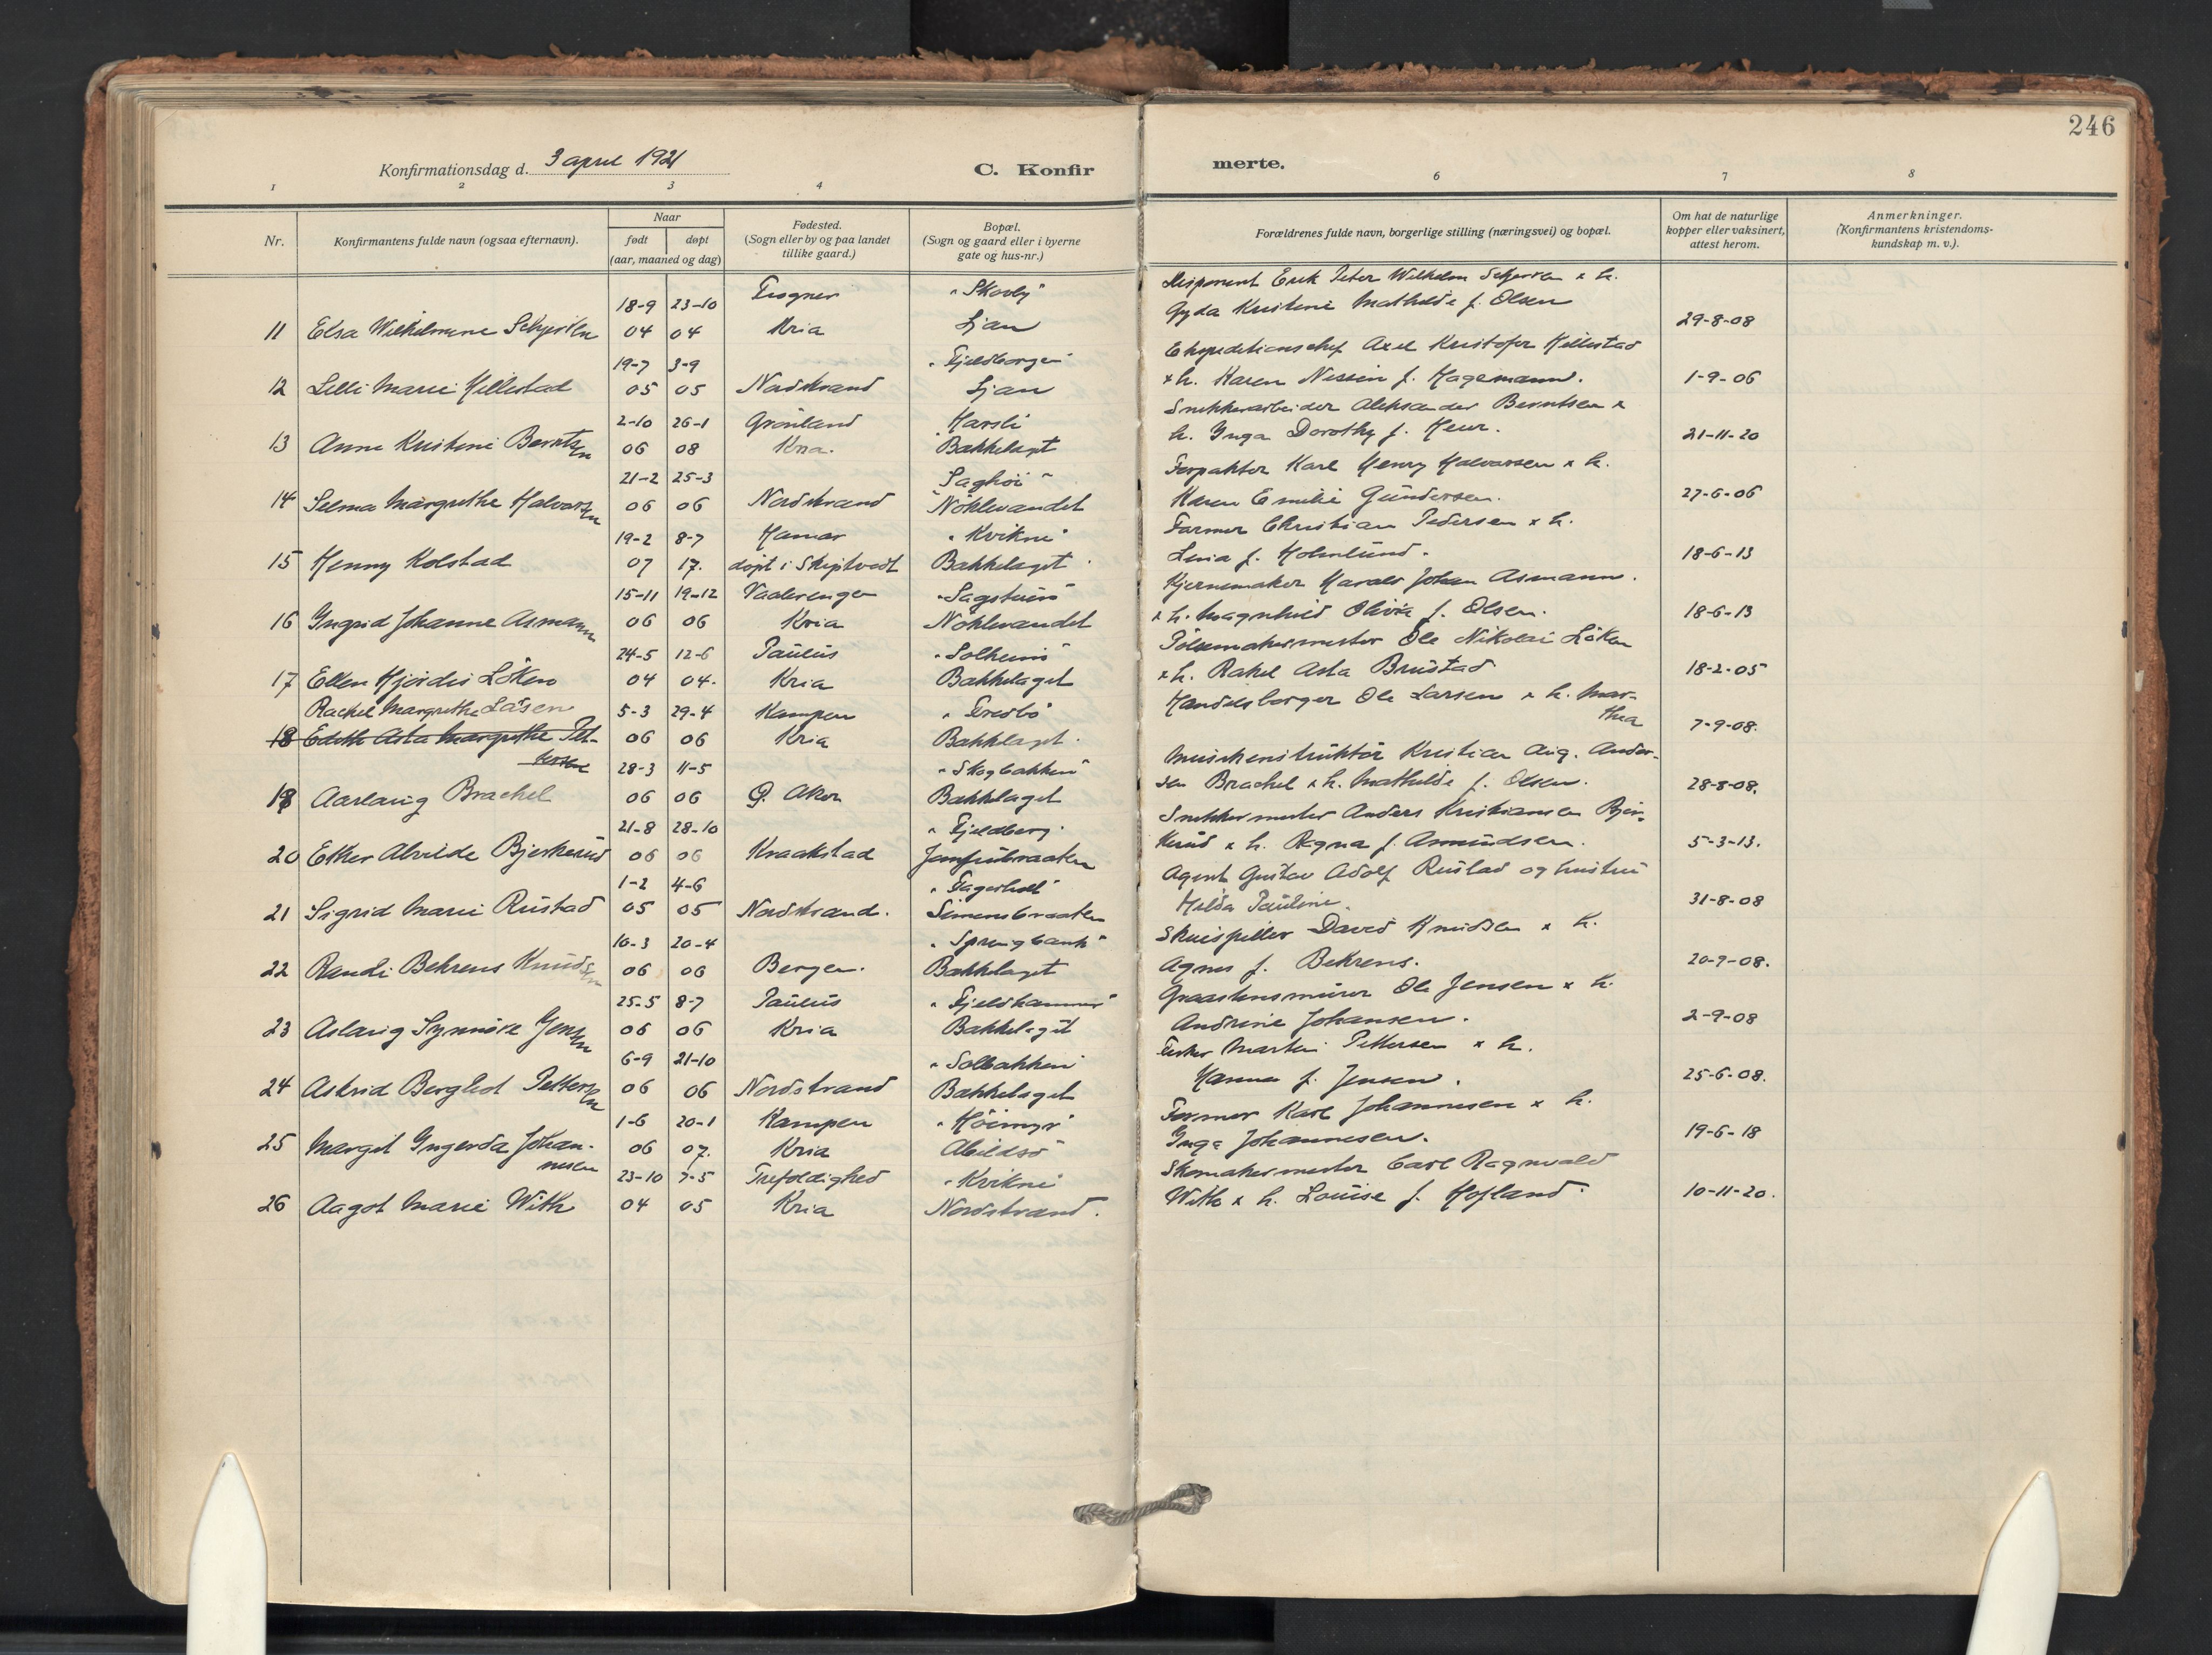 246
Konfirmationsdag d. 3 april 1921
C. Konfir
merte.
1 2 3 4 6 7 8
Nr.
Konfirmantens fulde navn (ogsaa efternavn).
Naar
født døpt
(aar, maaned og dag)
Fødested.
(Sogn eller by og paa landet
tillike gaard.)
Bopæl.
(Sogn og gaard eller i byerne
gate og hus-nr.)
Forældrenes fulde navn, borgerlige stilling (næringsvei) og bopæl.
Om hat de naturlige
kopper eller vaksinert,
attest herom.
Anmerkninger.
(Konfirmantens kristendoms-
kundskap m. v.).
18-9 23-10 Frogner "Skovly" Disponent Erik Peter Wilhelm Schjerven & h.
11 Elsa Wilhelmine Schjerven 04 04 Kria Ljan Gyda Kristine Mathilde f. Olsen 29-8-08
19-7 3-9 "Fjeldborgen" Ekspeditionschef Axel Kristofer Hillestad
12 Lilli Marie Hillestad 05 05 Nordstrand Ljan & h. Karen f. Hagemann. 1-9-06
2-10 26-1 Grønland Harsli Snekkerarbeider Aleksander Berntsen &
13 Anne Kristine Berntsen 06 08 Kria. Bækkelaget h. Inga Dorothy f. 21-11-20
21-2 25-3 "Saghøi" Forpakter Karl Henry Halvorsen & h.
14 Selma Margrethe Halvorsen 06 06 Nordstrand Nøklevandet Karen Emilie Gundersen. 27-6-06
19-2 8-7 Hamar "Kvikne" Former Christian Pedersen & h.
15 Henny Kolstad 07 17. døpt i Skiptvedt Bækkelaget Lina f. Holmlund. 18-6-13
15-11 19-12 Vaalerengen "Sagstuen" Kjernemaker Harald Johan Asmann.
16 Ingrid Johanne Asmann 06 06 Kria Nøklevandet & h. Magnhild Olivia f. Olsen. 18-6-13
24-5 12-6 Paulus "Solheim" Pølsemakermester Ole Nikolai Løken
17 Ellen Hjørdis Løken 04 04. Kria Bækkelaget & h. Rakel Asta Brustad 18-2-05
Rachel Margrethe Låsen 5-3 29-4 Kampen "Fredbo" Handelsborger Ole Larsen & h. Mar-
thea
18 Edith Asta Margrethe Pet- 06 06 Kria Bækkelaget. 7-9-08.
tersen
28-3 11-5 "Skogbakken" Musikinstruktør Kristian Aug. Ander-
19 Aaslaug Brachel 06 06 Ø. Aker Bækkelaget sen Brachel & h. Mathilde f. Olsen. 28-8-08.
21-8 28-10 "Fjeldberg" Snekkermester Anders Kristiansen Bjer-
20 Esther Alvilde Bjerkerud 06 06 Kraakstad Jomfrubraaten kerud & h. Ragna f. Asmundsen. 5-3-13.
1-2 4-6 "Fagerholt" Agent Gustav Adolf Rustad og hustru
21 Sigrid Marie Rustad 05 05 Nordstrand. Simensbraaten Hilda Pauline. 31-8-08
16-3 20-4 "Springbank" Skuespiller David Knudsen & h.
22 Randi Behrens Knudsen 06 06 Bergen. Bækkelaget Agnes f. Behrens. 20-7-08.
25-5 8-7 Paulus "Fjeldhammer" Graastensmurer Ole Jensen & h.
23 Aslaug Synnøve Jensen 06 06 Kria Bækkelaget Andrine Johansen. 2-9-08
6-9 21-10 "Solbakken" Fisker Martin Pettersen & h.
24 Astrid Bergliot Pettersen 06 06 Nordstrand Bækkelaget Hanna f. Jensen. 25-6-08.
1-6 20-1 Kampen "Høimyr" Former Karl Johannesen & h.
25 Margit Ingerda Johan- 06 07. Kria Abildsø Inga Johannesen. 19-6-18
nesen
23-10 7-5 Trefoldighed "Kvikne" Skomakermester Carl Ragnvald
26 Aagot Marie With 04 05 Kria Nordstrand. With & h. Louise f. Hofland. 10-11-20.